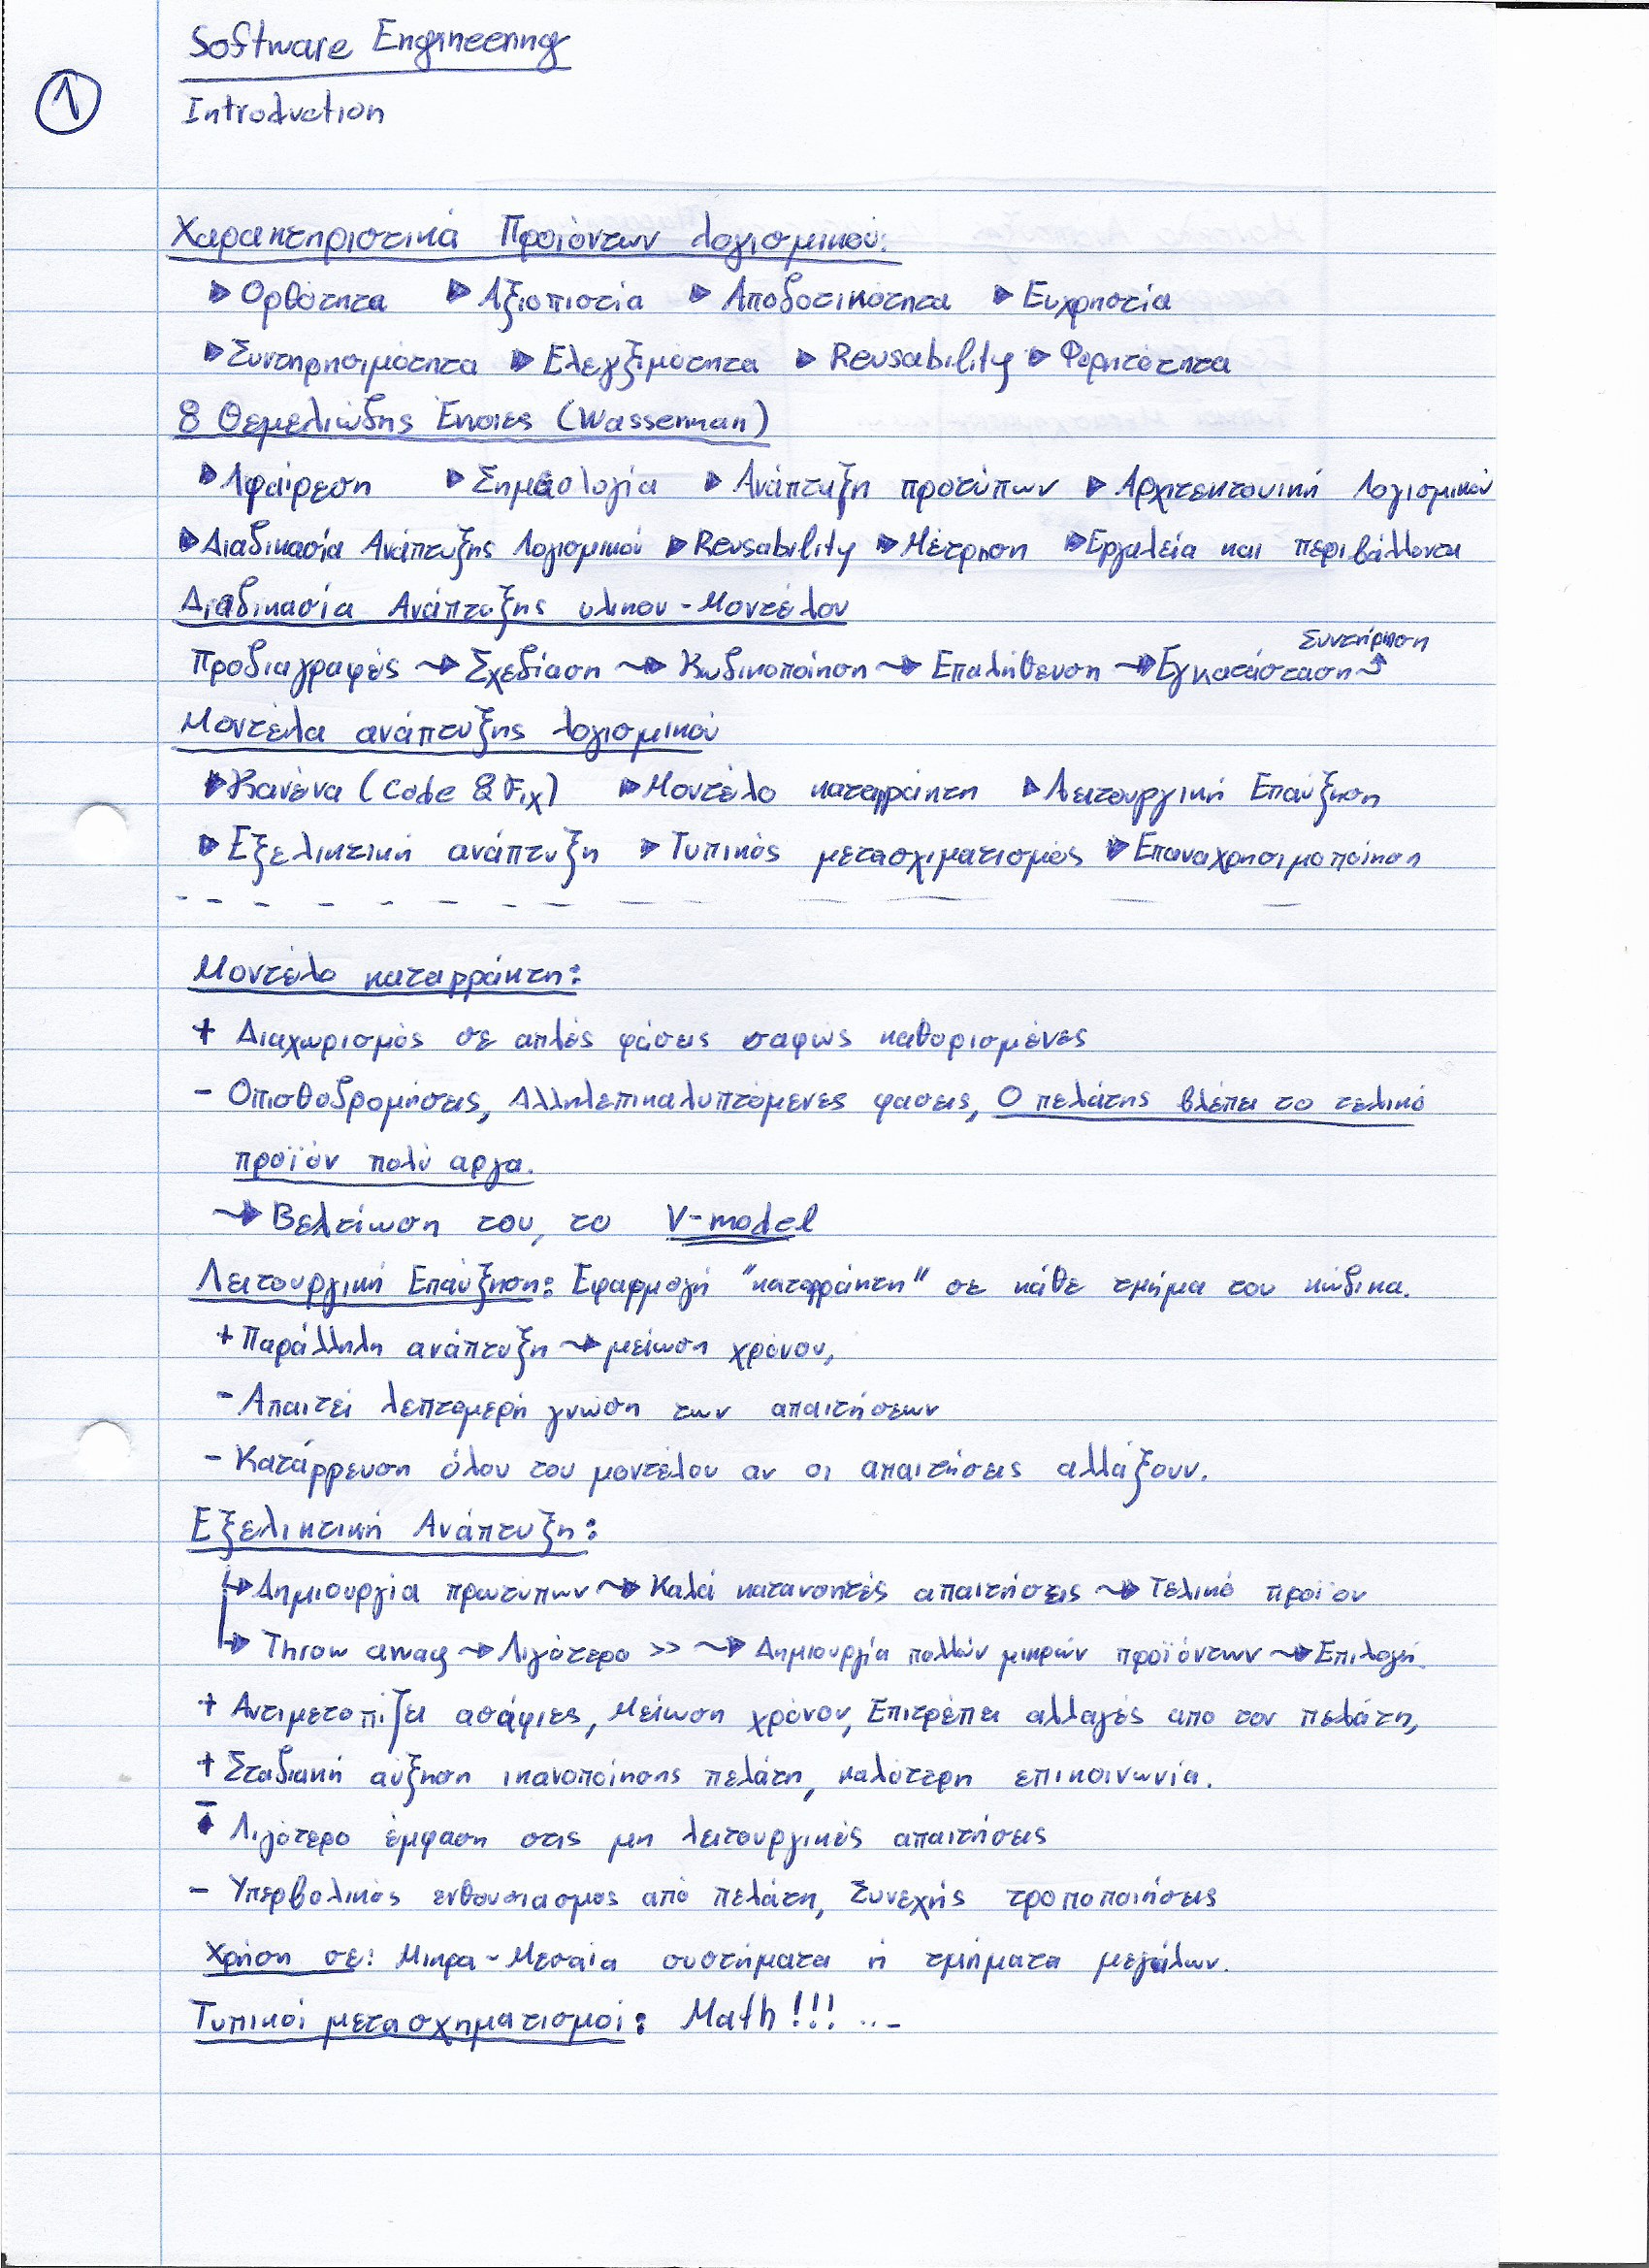 Software Engineering
① Introduction
Χαρακτηριστικά Προιόντων λογισμικού:
▶ Ορθότητα ▶ Αξιοπιστία ▶ Αποδοτικότητα ▶ Ευχρηστία
▶ Συντηρησιμότητα ▶ Ελεγξιμότητα ▶ Reusability ▶ Φορητότητα
8 Θεμελιώδης Έννοιες (Wasserman)
▶ Αφαίρεση ▶ Σημασιολογία ▶ Ανάπτυξη προτύπων ▶ Αρχιτεκτονική Λογισμικού
▶ Διαδικασία Ανάπτυξης Λογισμικού ▶ Reusability ▶ Μέτρηση ▶ Εργαλεία και περιβάλλοντα
Διαδικασία Ανάπτυξης υλικου - Μοντέλου
Συντήρηση
Προδιαγραφές → Σχεδίαση → Κωδικοποίηση → Επαλήθευση → Εγκατάσταση
Μοντέλα ανάπτυξης λογισμικού
▶ Κανένα (Code & Fix) ▶ Μοντέλο καταρράκτη ▶ Λειτουργική Επαύξηση
▶ Εξελικτική ανάπτυξη ▶ Τυπικός μετασχιματισμός ▶ Επαναχρησιμοποίηση
Μοντέλο καταρράκτη:
+ Διαχωρισμός σε απλές φάσεις σαφώς καθορισμένες
- Οπισθοδρομήσεις, Αλληλεπικαλυπτόμενες φασεις, Ο πελάτης βλέπει το τελικό
προϊόν πολύ αργα.
→ Βελτίωση του, το V-model
Λειτουργική Επαύξηση: Εφαρμογή "καταρράκτη" σε κάθε τμήμα του κώδικα.
+ Παράλληλη ανάπτυξη → μείωση χρόνου,
- Απαιτεί λεπτομερή γνώση των απαιτήσεων
- Κατάρρευση όλου του μοντέλου αν οι απαιτήσεις αλλάξουν.
Εξελικτική Ανάπτυξη:
→ Δημιουργία πρωτύπων → Καλά κατανοητές απαιτήσεις → Τελικό προϊον
→ Throw away → Λιγότερο >> → Δημιουργία πολλών μικρών προϊόντων → Επιλογή.
+ Αντιμετοπίζει ασάφιες, Μείωση χρόνου, Επιτρέπει αλλαγές απο τον πελάτη,
+ Σταδιακή αύξηση ικανοποίησης πελάτη, καλύτερη επικοινωνία.
- Λιγότερο έμφαση στις μη λειτουργικές απαιτήσεις
- Υπερβολικός ενθουσιασμος από πελάτη, Συνεχής τροποποιήσεις
Χρήση σε: Μικρα - Μεσαία συστήματα ή τμήματα μεγάλων.
Τυπικοί μετασχηματισμοί: Math!!! ...